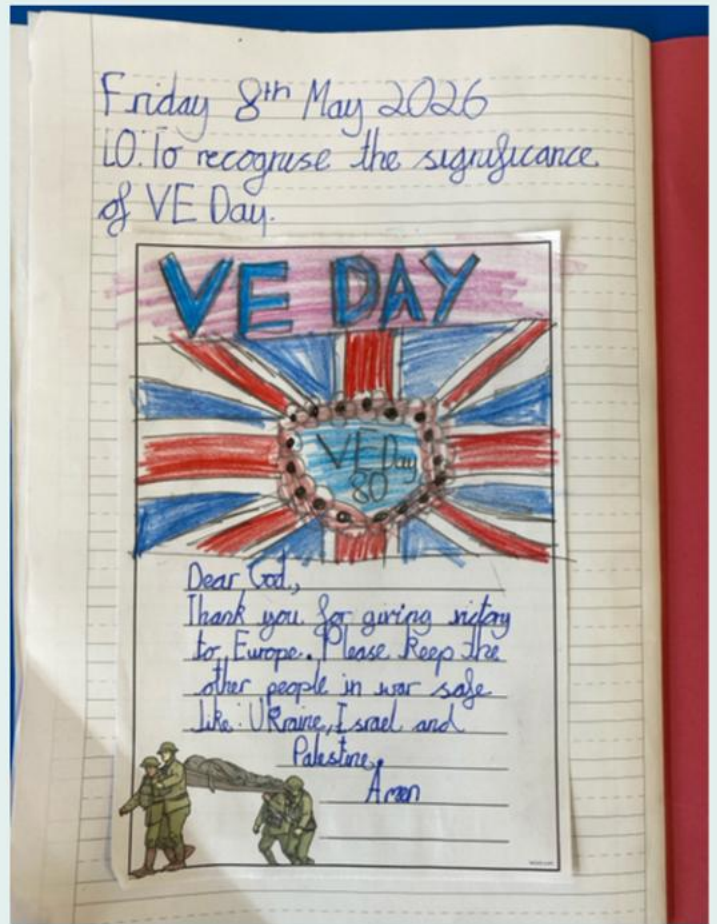 Friday 8th May 2026
LO: To recognise the significance
of VE Day.
VE DAY
VE Day
80
Dear God,
Thank you for giving victory
to Europe. Please keep the
other people in war safe
like: Ukraine, Israel and
Palestine.
Amen